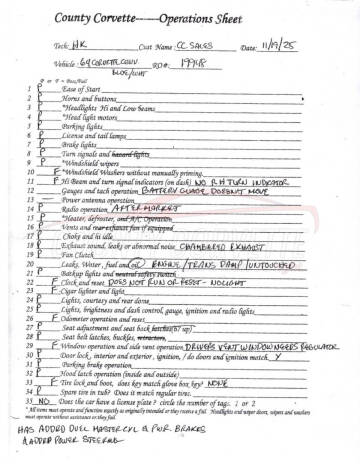 County Corvette-----Operations Sheet
Tech: WK Cust Name: CC SALES Date: 11/19/25
Vehicle: 69 CORVETTE CONV RO#: 19948
BLUE/WHT
P or F = Pass/Fail
1 P Ease of Start
2 P Horns and buttons
3 P *Headlights Hi and Low beams
4 P *Head light motors
5 P Parking lights
6 P License and tail lamps
7 P Brake lights
8 P Turn signals and hazard lights
9 P *Windshield wipers
10 F *Windshield Washers without manually priming.
11 F Hi Beam and turn signal indicators (on dash) NO RH TURN INDICATOR
12 Gauges and tach operation BATTERY GUAGE DOESN'T MOVE
13 — Power antenna operation
14 P Radio operation AFTER MARKET
15 P *Heater, defroster, and A/C Operation
16 P Vents and rear exhaust fan if equipped
17 P Choke and hi idle
18 P Exhaust sound, leaks or abnormal noise CHAMBERED EXHAUST
19 P Fan Clutch
20 Leaks, Water, fuel and oil ENGINE/TRANS DAMP/UNTOUCHED
21 P Backup lights and neutral safety switch
22 F Clock and reset DOES NOT RUN OR RESET - NO LIGHT
23 F Cigar lighter and light
24 P Lights, courtesy and rear dome
25 P Lights, brightness and dash control, gauge, ignition and radio lights
26 F Odometer operation and reset
27 P Seat adjustment and seat back latches (67 up)
28 P Seat belt latches, buckles, retractors,
29 F Window operation and side vent operation DRIVERS VENT WINDOW NEEDS REGULATOR
30 P Door lock, interior and exterior, ignition, / do doors and ignition match Y
31 P Parking brake operation
32 P Hood latch operation (inside and outside)
33 F Tire lock and boot, does key match glove box key? NONE
34 P Spare tire in tub? Does it match regular tire?
35 NO Does the car have a license plate? circle the number of tags: 1 or 2
* All items must operate and function exactly as originally intended or they receive a fail. Headlights and wiper doors, wipers and washers
must operate without assistance or they receive a fail.
HAS ADDED DUEL MASTER CYL & PWR. BRAKES
& ADDED POWER STEERING